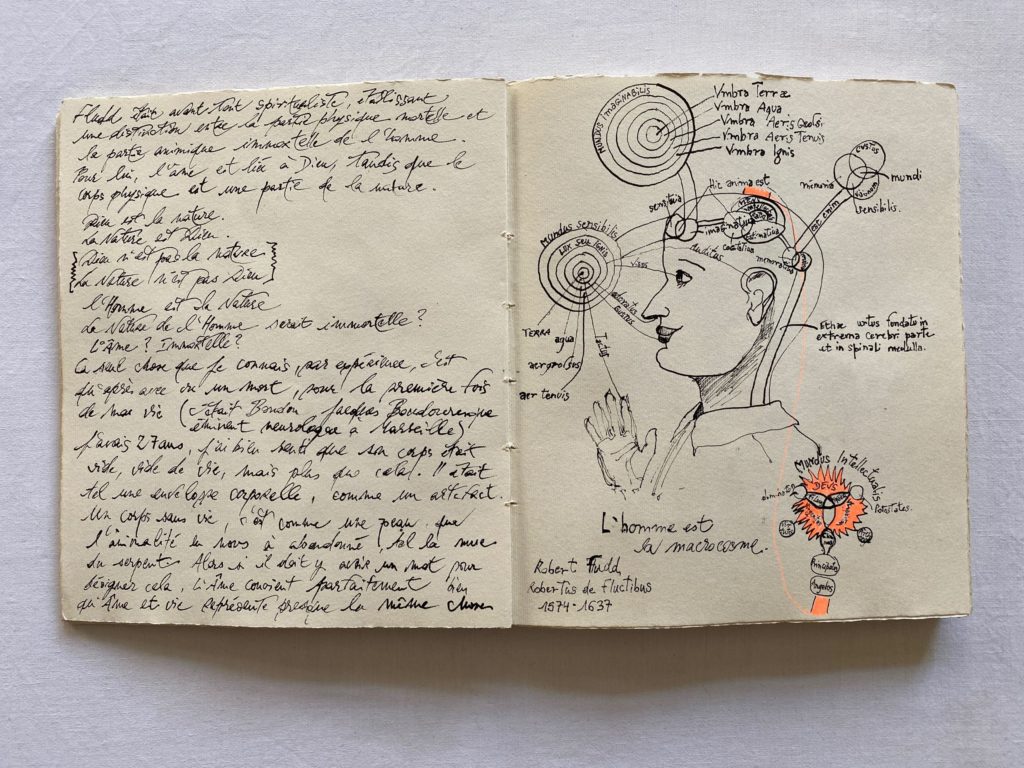 Fludd était avant tout spiritualiste, établissant
une distinction entre la partie physique mortelle et
la partie animique immortelle de l'homme.
Pour lui, l'âme est liée à Dieu, tandis que le
corps physique est une partie de la nature.
Dieu est la nature.
La Nature est Dieu.
Dieu n'est pas la nature
La Nature n'est pas Dieu
l'Homme est la Nature
La Nature de l'Homme serait immortelle?
L'Âme? Immortelle?
La seul chose que je connais, par expérience, c'est
qu'après avoir vu un mort, pour la première fois
de ma vie (c'était Boudou Jacques
éminent neurologue à Marseille)
J'avais 27 ans, j'ai bien senti que son corps était
vide, vide de vie, mais plus que cela. Il était
tel une enveloppe corporelle, comme un artefact.
Un corps sans vie, c'est comme une peau que
l'animalité en nous à abandonné, tel la mue
du serpent. Alors si il doit y avoir un mot pour
désigner cela, L'Âme convient parfaitement bien
qu'Âme et vie représente presque la même chose
MUNDUS IMAGINABILIS
Vmbra Terræ
Vmbra Aqua
Vmbra Aeris
Vmbra Aeris Tenuis
Vmbra Ignis
Hic anima est
sensitiva
imaginativa
Cogitativa
Estimativa
memorativa
memoria
mundi
sensibilis.
est enim
Mundus sensibilis
LUX SEU IGNIS
Visus
Auditus
odoratus
Gustus
Tactus
TERRA
aqua
aer tenuis
in
extrema cerebri parte
et in spinali medulla.
Mundus Intellectualis
DEUS
Potestates.
Angelos
L'homme est
la macrocosme.
Robert Fludd
Robertus de Fluctibus
1574-1637